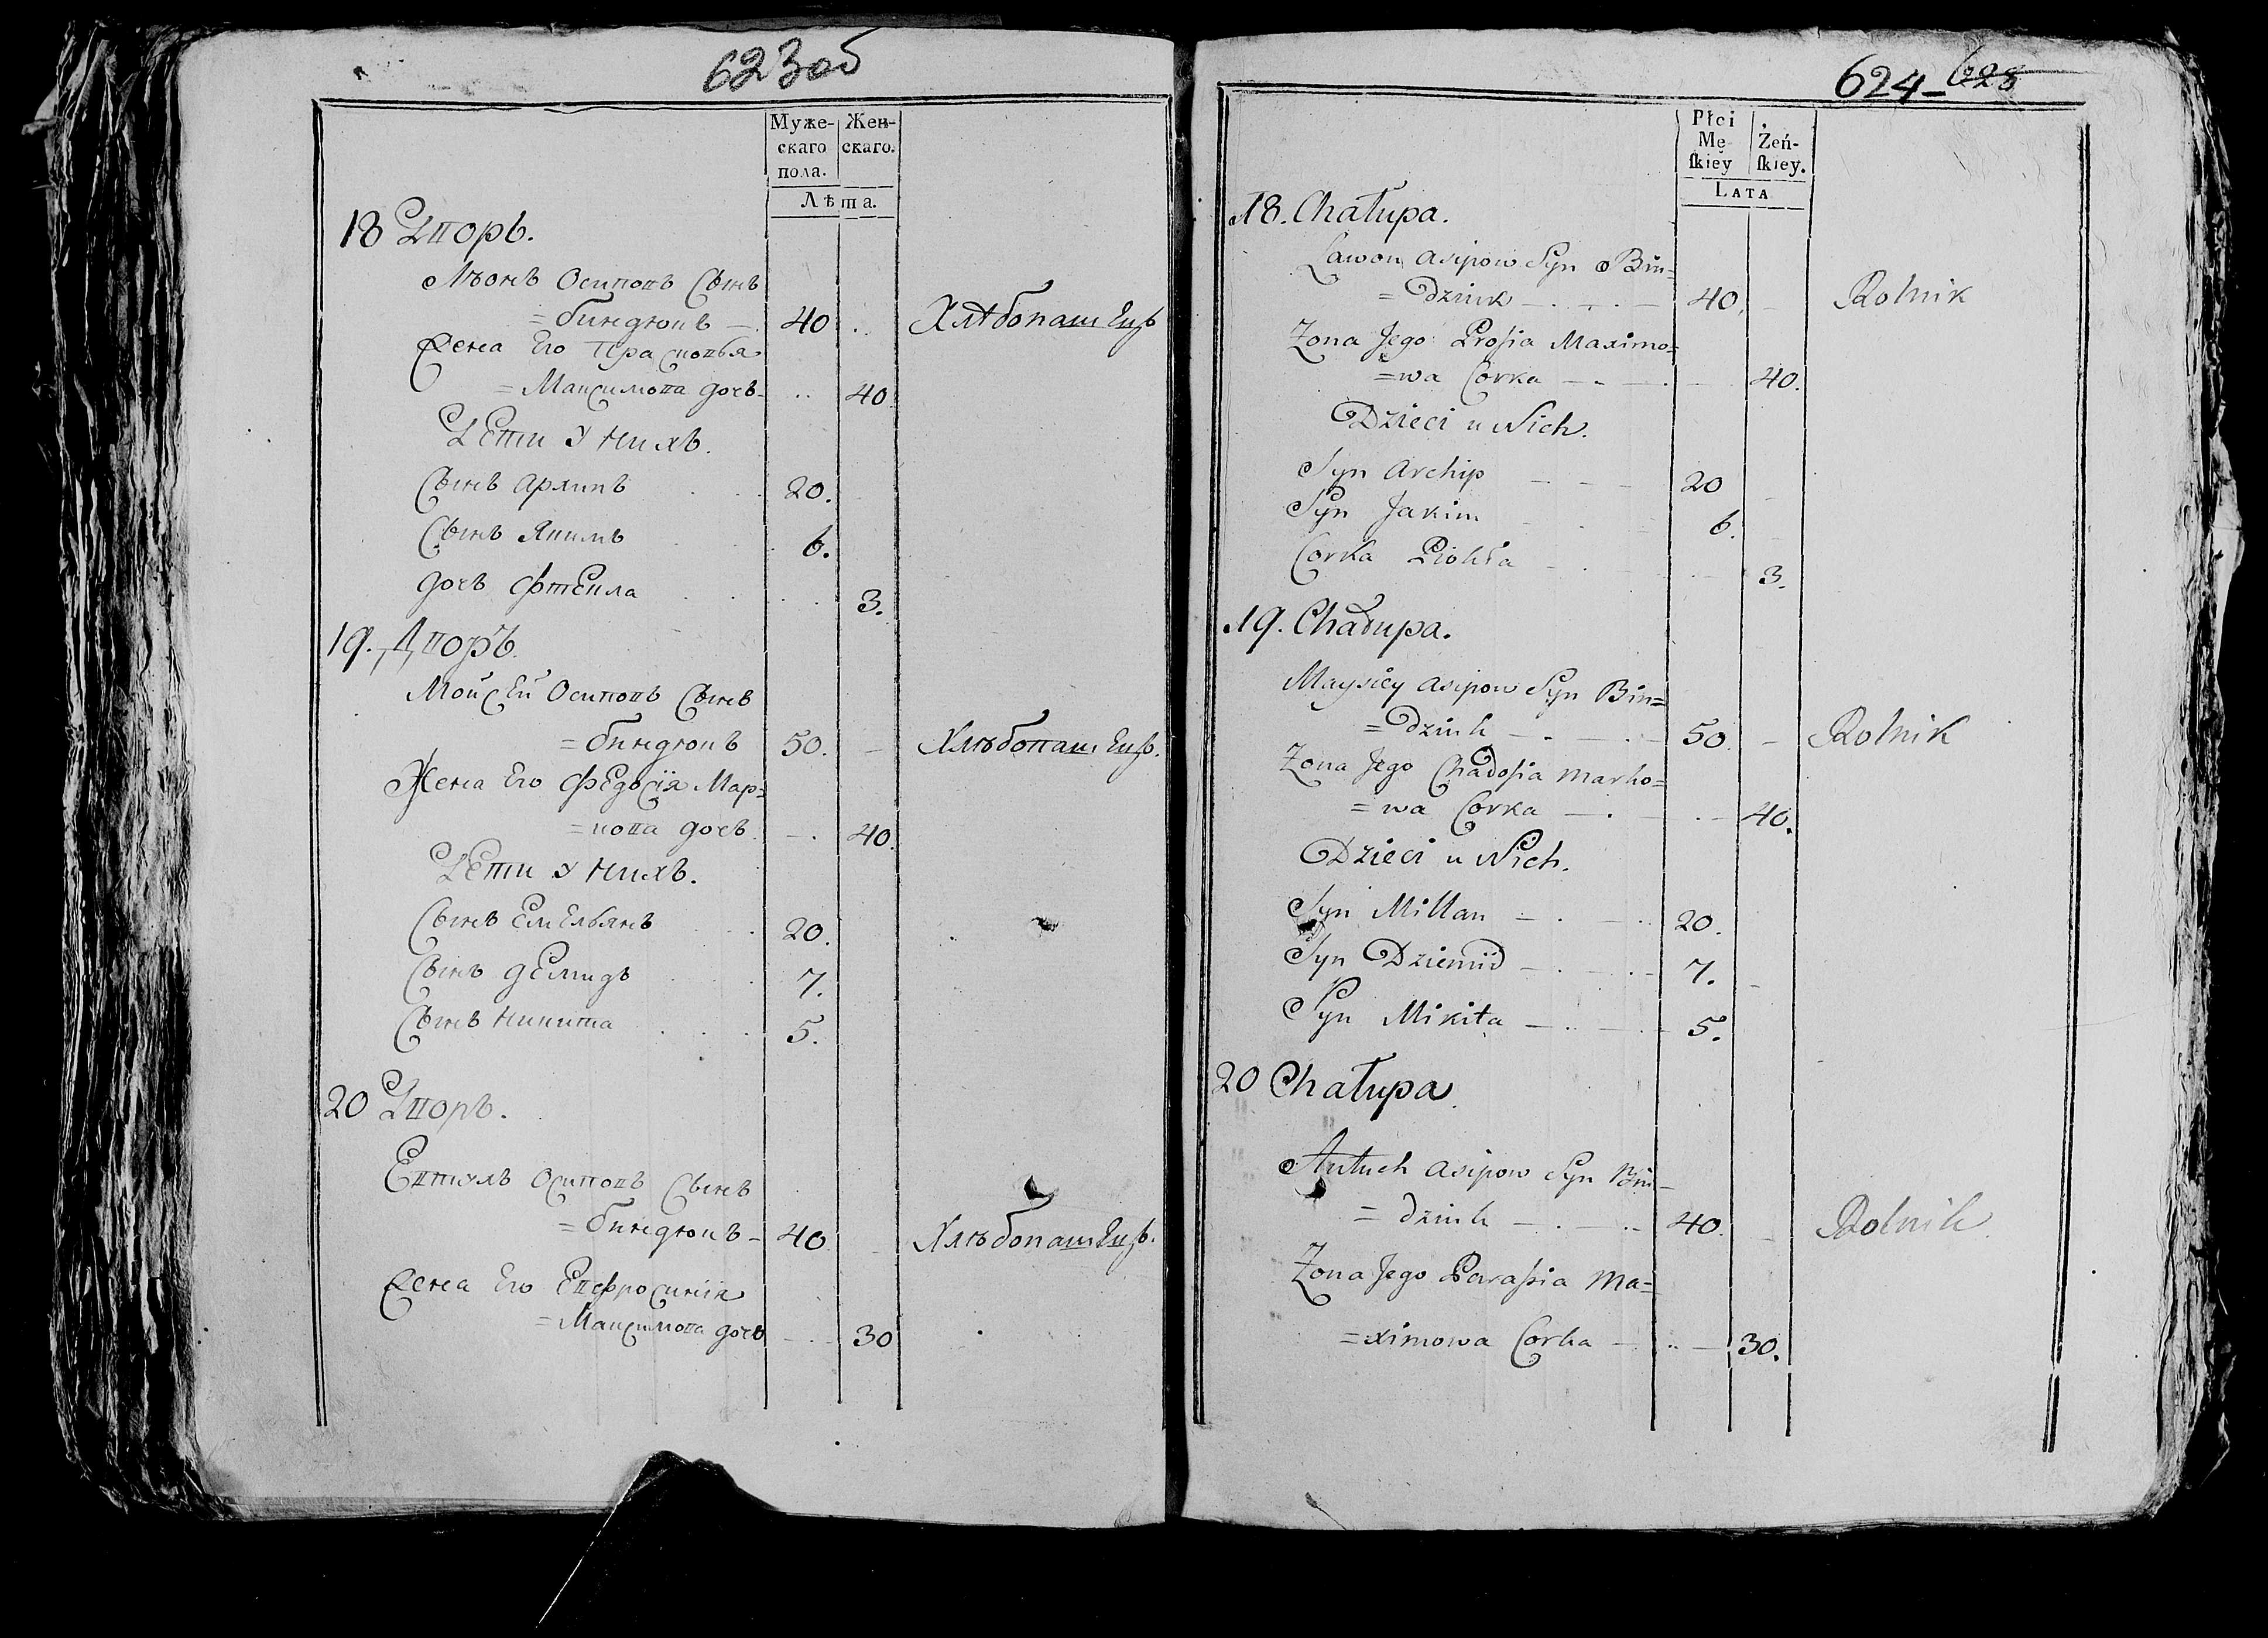 623об
Муже-
скаго
пола.
Жен-
скаго.
Лѣта.
18 Дворъ.
Лѣонъ Осиповъ Сынъ
=биндюкъ — 40 ..
Хлѣбопашецъ
Жена Его Прасковья
=Максимова дочь - .. 40
Дети У нихъ.
Сынъ Архипъ . . 20.
Сынъ Якимъ . . 6.
дочь Фтекла . . . . 3.
19. Дворъ.
Мойсей Осиповъ Сынъ
=биндюкъ 50. —
Хлѣбопашецъ.
Жена Его Федосія Мар=
=кова дочь — . 40.
Дети У нихъ.
Сынъ Емельянъ . . 20.
Сынъ демидъ . . 7.
Сынъ Никита . . . 5.
20 Дворъ.
Евтухъ Осиповъ Сынъ
=биндюкъ - 40 —
Хлѣбопашецъ.
Жена Его Евфросинія
=Максимова дочь — 30
624 - 628
Płci
Mę
ſkiey
Żeń-
ſkiey.
Lata
18. Chałupa.
Lawon asipow Syn Bin=
=dziuk — . — . — 40. —
Rolnik
Zona Jego Prosia Maximo=
=wa Corka — - — . — 40.
Dzieci u Nich.
Syn Archip — - — 20 -
Syn Jakim - . 6. -
Corka Fiokła - . - . 3.
19. Chałupa.
Maysiey asipow Syn Bin=
=dziuk — . — . — 50. —
Rolnik
Zona Jego Chadosia marko=
=wa Corka — . — . — 40.
Dzieci u Nich.
Syn Millan — . — . 20.
Syn Dziemid — . — . 7. -
Syn Mikita — . — . 5.
20 Chałupa.
Autuch asipow Syn Bin—
=dziuk — . — . 40. —
Rolnik.
Zona Jego Parasia Ma=
=ximowa Corka — .. — 30.